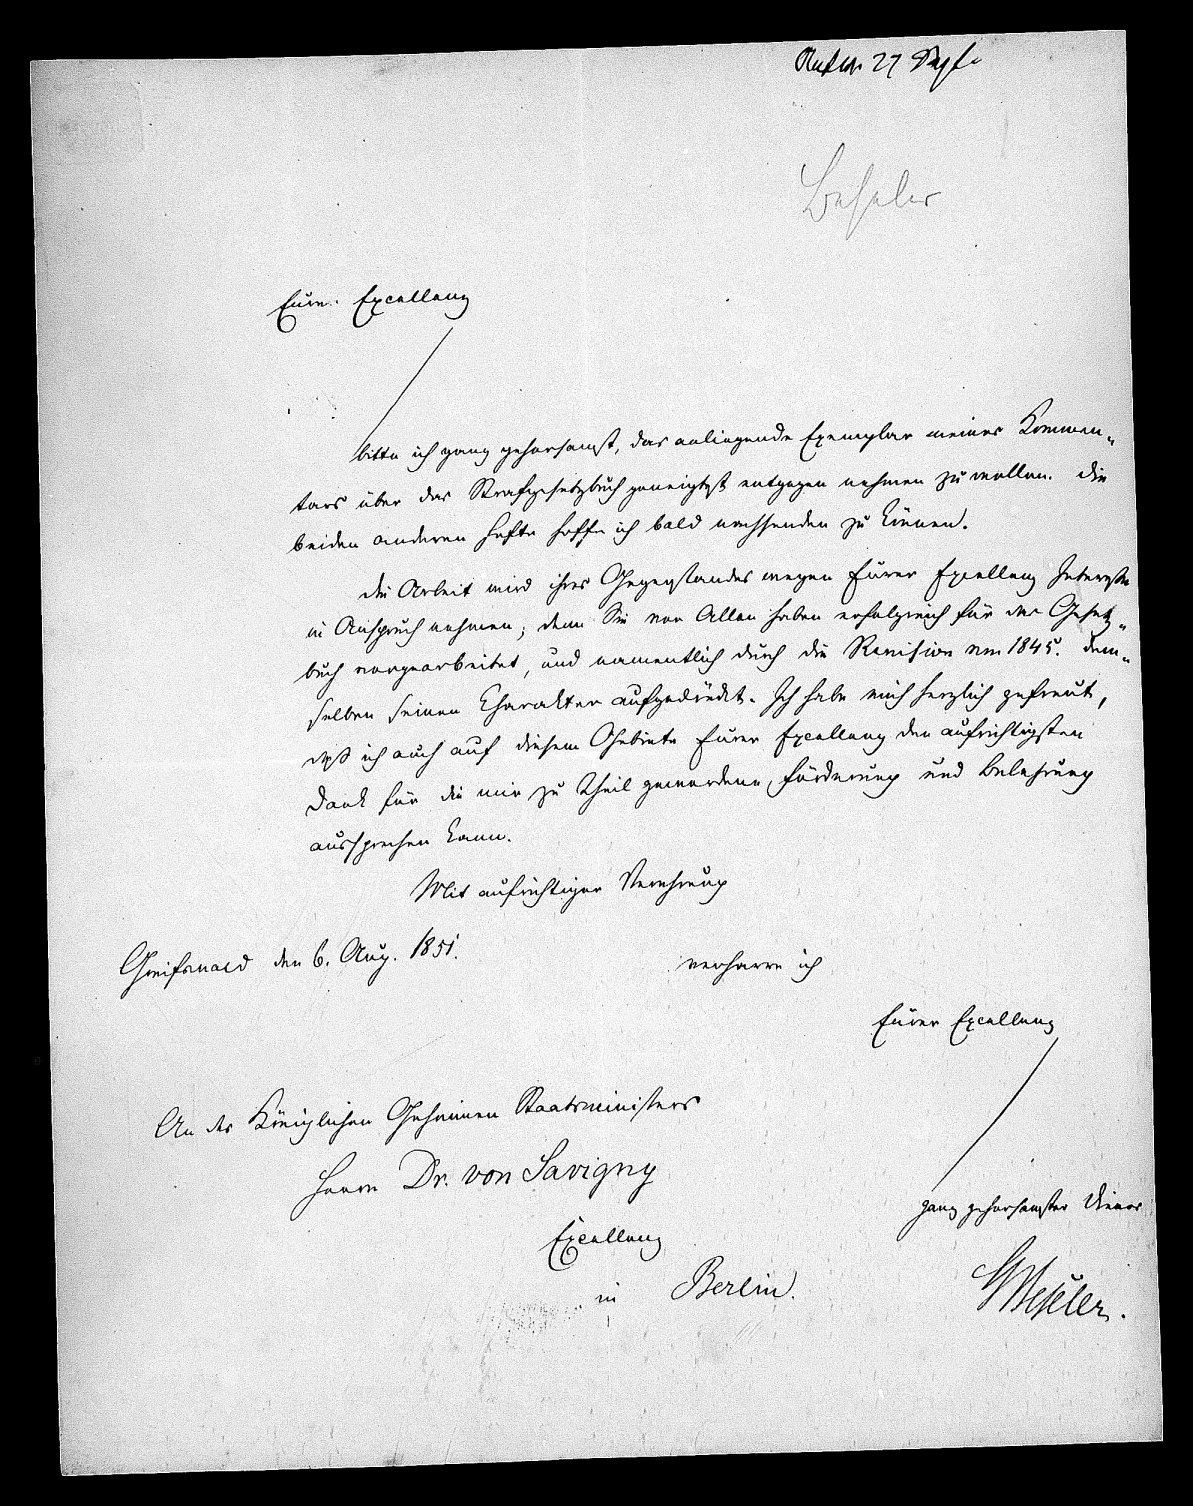 27 Sept
Beseler
Eurer Excellenz
bitte ich ganz gehorsamst, das anliegende Exemplar meines Kommen-
tars über das Strafgesetzbuch geneigtest entgegen nehmen zu wollen. Die
beiden anderen Hefte hoffe ich bald nachsenden zu können.
Die Arbeit wird ihres Gegenstandes wegen Eurer Excellenz Interesse
in Anspruch nehmen; denn Sie vor Allen haben erfolgreich für das Gesetz-
buch vorgearbeitet, und namentlich durch die Revision von 1845. dem-
selben seinen Charakter aufgedrückt. Ich habe mich herzlich gefreut,
daß ich auch auf diesem Gebiete Eurer Excellenz den aufrichtigsten
Dank für die mir zu Theil gewordene Förderung und Belehrung
aussprechen kann.
Mit aufrichtiger Verehrung
Greifswald den 6. Aug. 1851.
verharre ich
Eurer Excellenz
An des Königlichen Geheimen Staatsministers
Herrn Dr. von Savigny
ganz gehorsamster Diener
Excellenz
in Berlin.
GBeseler.